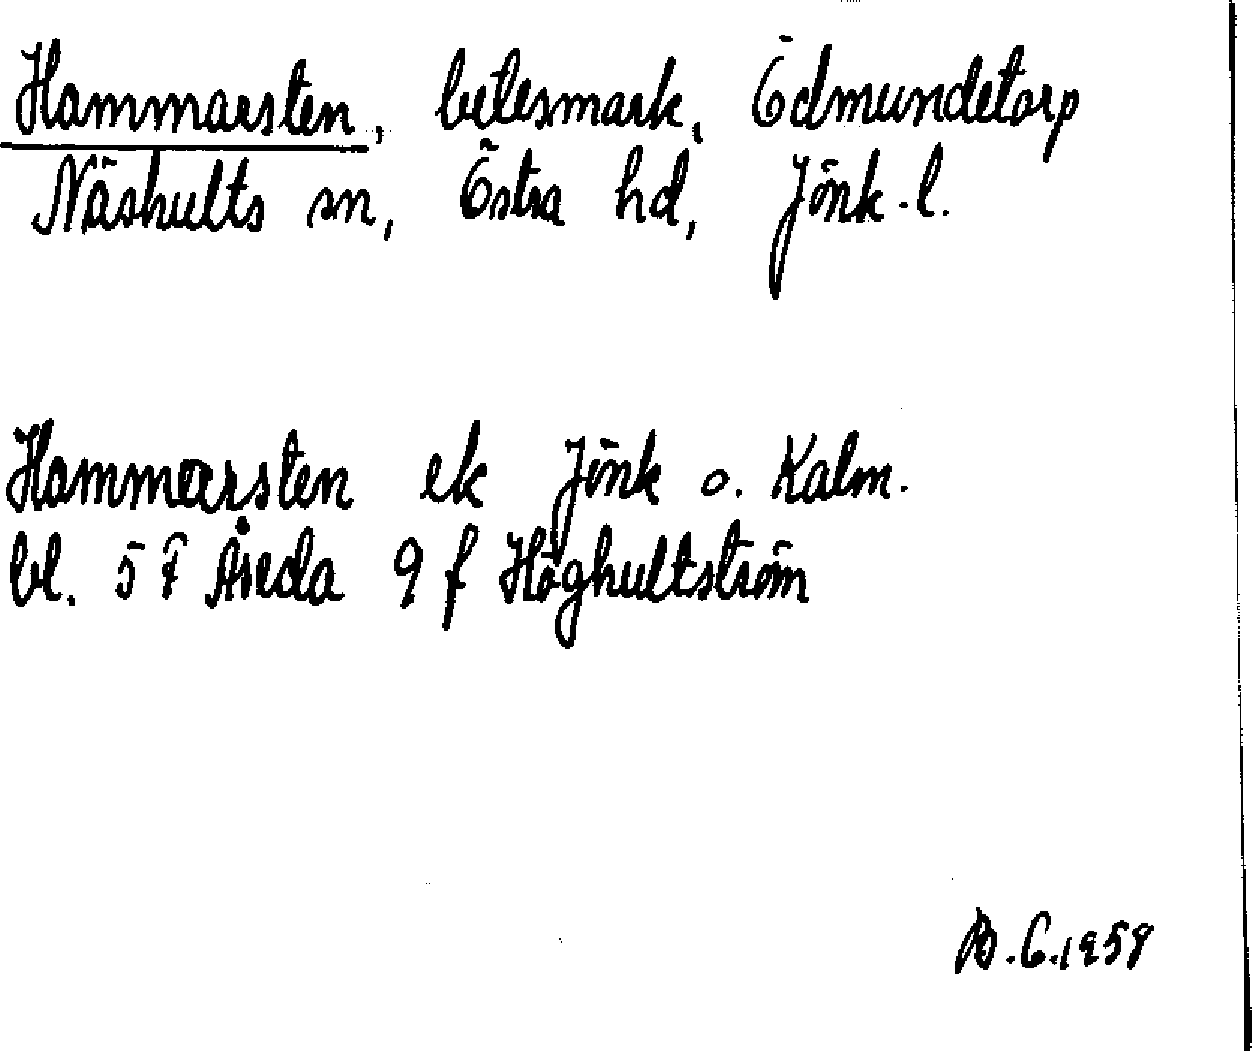 Hammarsten, betesmark, Ödmundetorp
Näshults sn, Östra hd, Jönk. l.
Hammarsten ek Jönk o. Kalm.
bl. 5 F Åseda 9 f Höghultström
B. G. 1959